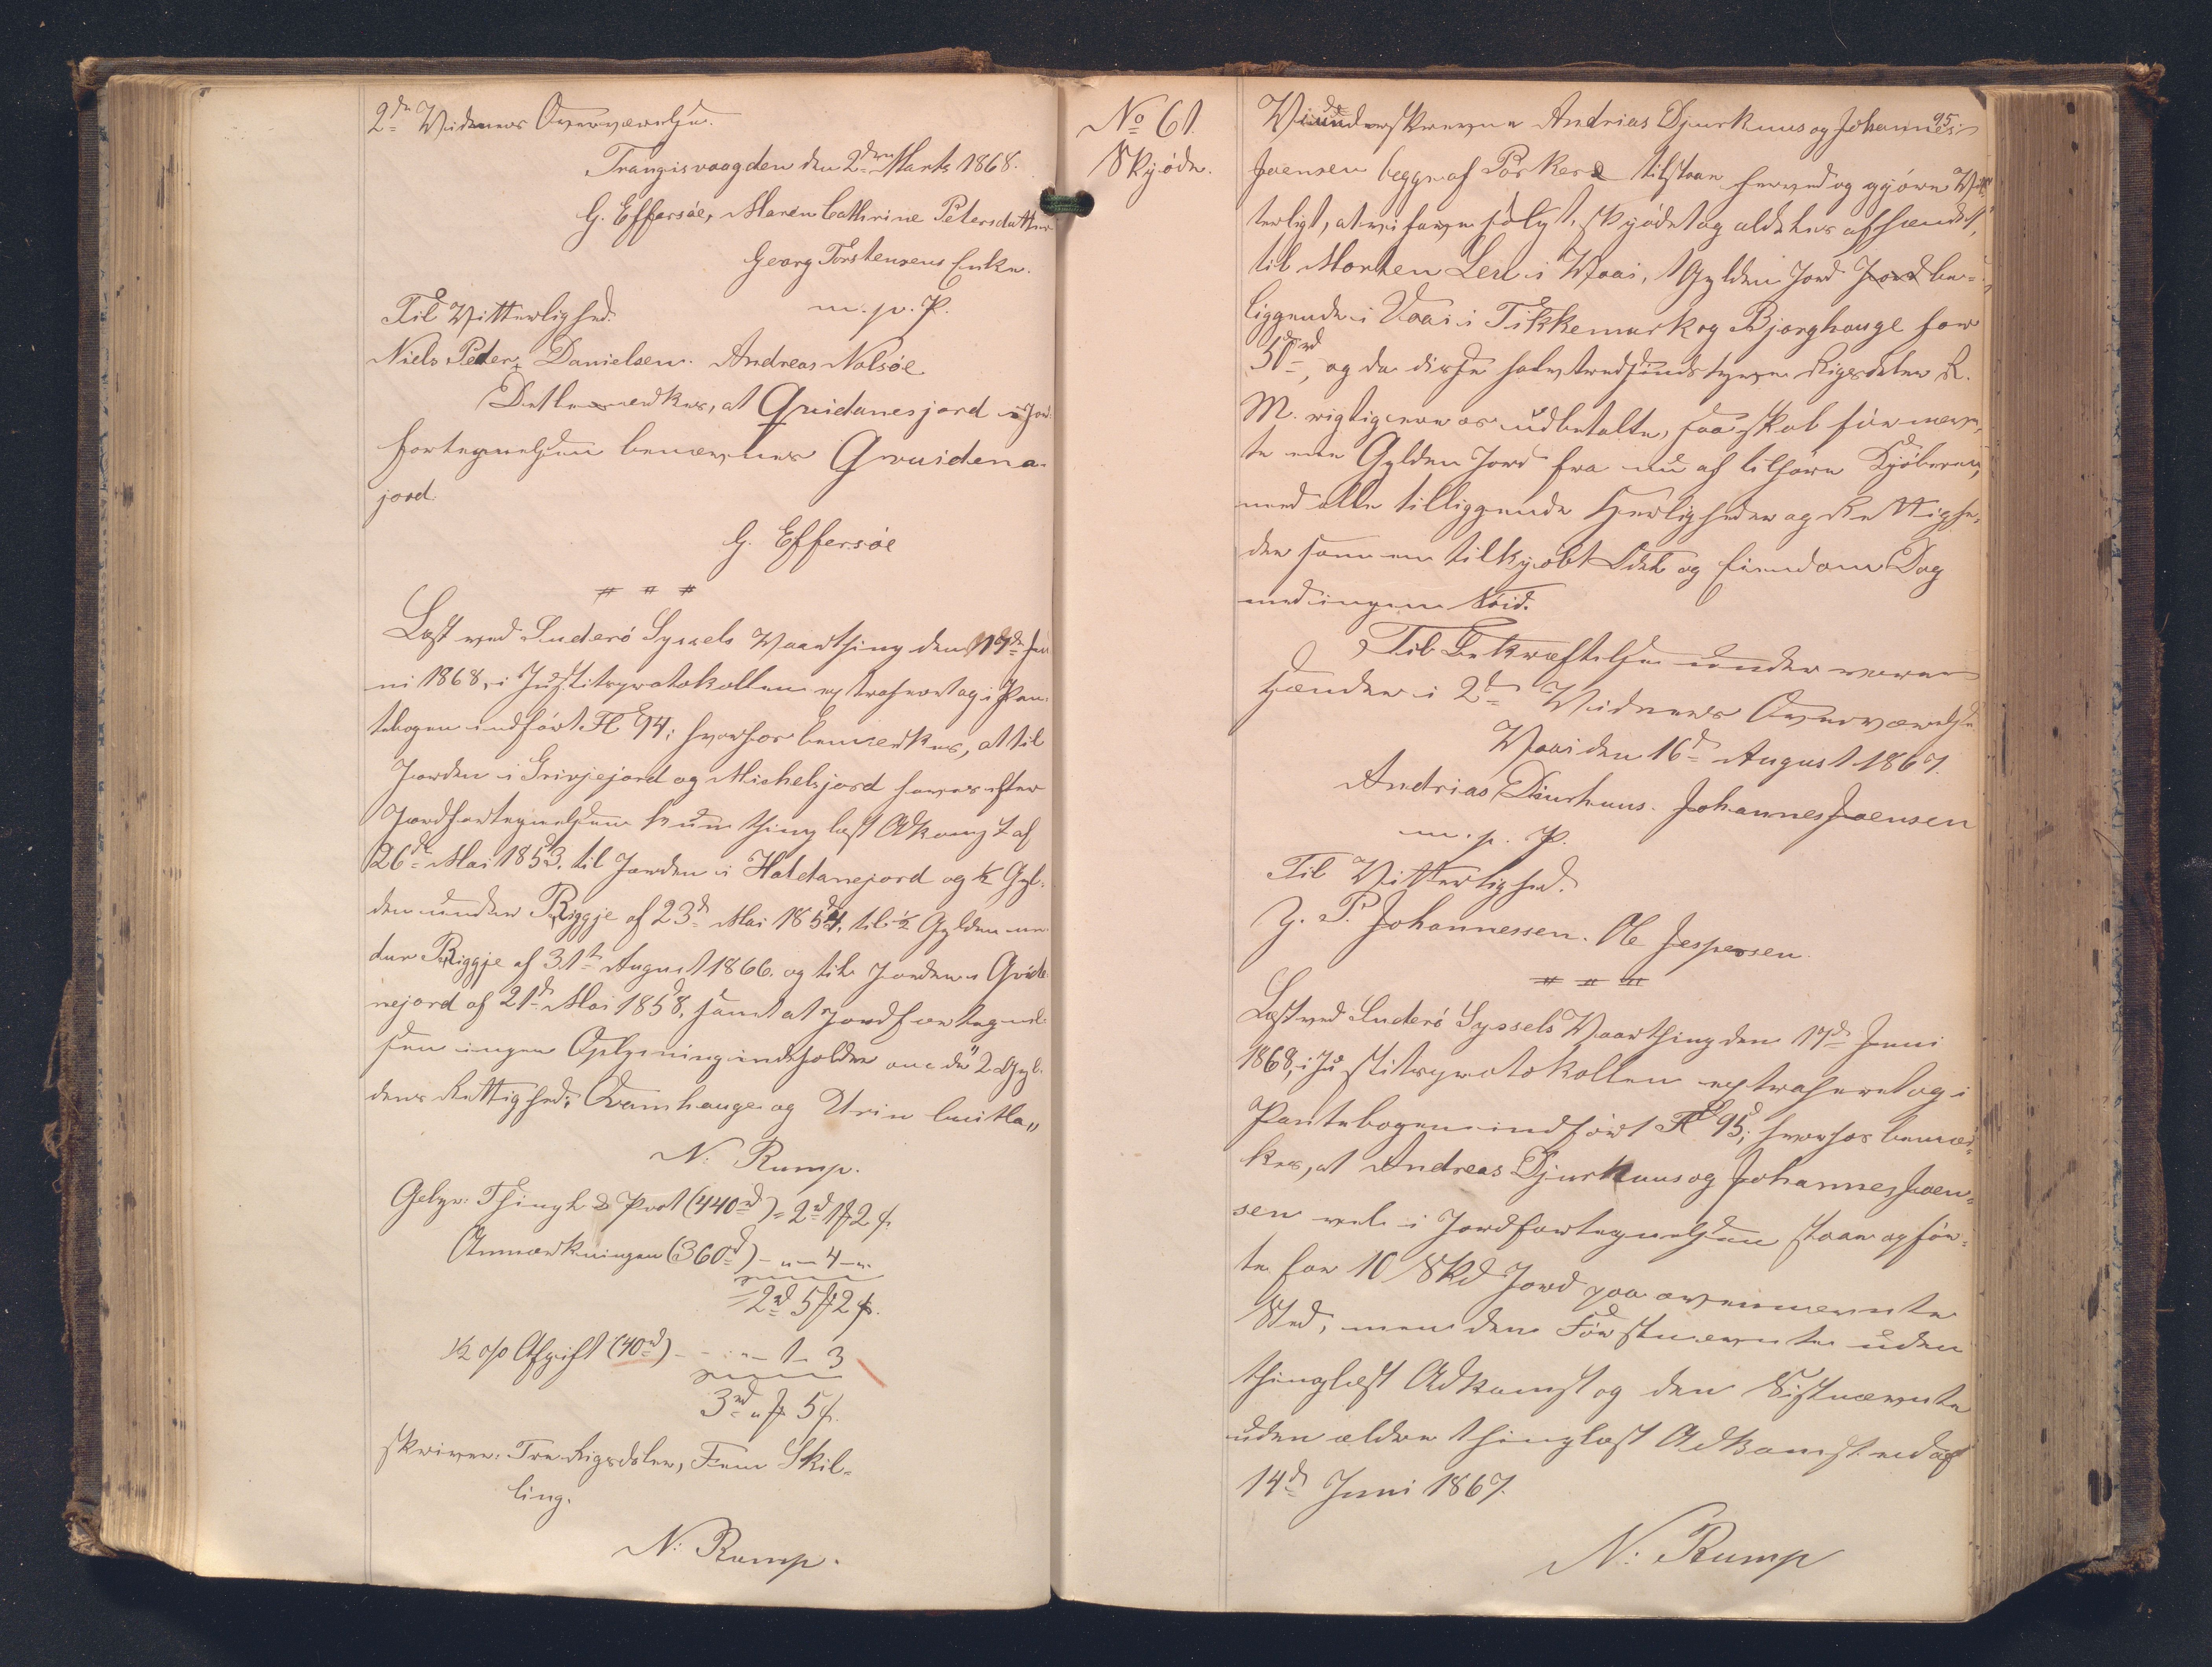 2den Vidners Overværelse.
Trangisvaag den 2den Marts 1868.
G. Effersöe, Maren Cathrine Petersdatter
Georg Torstensens Enke.
m. p. P.
Til Vitterlighed.
Niels Peder Danielsen. Andreas Nolsöe
Det bemerkes, at Quidanesjord i Jord
fortegnelsen benævnes Gruidena-
jord.
G. Effersöe
Læst ved Suderö Syssels Vaarthing den 17de Ju
ni 1868, i Justitsprotokollen extraheret og i Pan-
tebogen indført Fol 94; hvorhos bemærkes, at til
Jorden i Grivjejord og Michelsjord haves efter
Jordfortegnelsen kun thinglæst Adkomst af
26de Mai 1853. til Jorden i Haldanejord og ½ Gyl-
den under Ryggje af 23de Mai 1854, til ½ Gylden un-
der Ryggje af 31te August 1866. og til Jorden i Qvide
nejord af 21de Mai 1858, samt at Jordfortegnel-
sen ingen Oplysning indeholder om de "2 Gyl-
dens Rettighed: Qvamhauge og Urin Cuitla"
N: Rump.
Gebyr: Thingl & Prot (440rd) = 2rd 1 ℳ 2 ß.
Anmærkningen (360rd) - " - 4 - "
= 2rd 5 ℳ 2 ß.
½ o/o Afgift (40rd) - " - 1 - 3
3rd " ℳ 5 ß.
skriver: Tre Rigsdaler, Fem Skil-
ling.
N: Rump.
No 61.
Skjøde.
95.
Vi underskrevne Andrias Djurhuus og Johannes
Joensen begge af Porkere tilstaae herved og gjöre Vit-
terligt, at vi have sölgt, skjödet og aldeles afhændet,
til Morten Lex i Vaai, 1 Gylden Jord Jord be-
liggende i Vaai i Tikkemark og Bjorghauge for
50rd, og da disse halvtredsindstyve Rigsdaler R.
M. rigtig ere os udbetalte, saa skal förnævn-
te ene Gylden Jord fra nu af tilhöre Kjöberen,
med alle tilliggende Herligheder og Rettighe-
der som en tilkjøbt Odel og Eiendom Dog
med ingen Töid.
Til Bekræftelse under vore
Hænder i 2de Vidners Overværelse
Vaai den 16de August 1867.
Andrias Diurhuus. Johannes Joensen
m. p. P.
Til Vitterlighed.
J. P. Johannessen. Ole Jespersen.
Læst ved Suderö Syssels Vaarthing den 17de Juni
1868, i Justitsprotokollen extraheret og i
Pantebogen indført Fol 95; hvorhos bemær-
kes, at Andreas Djurhuus og Johannes Joen-
sen vel i Jordfortegnelsen staae opför-
te for 10 Skd Jord paa ovennævnte
Sted, men den Förstnævnte uden
thinglæst Adkomst og den Sidstnævnte
uden ældre thinglæst Adkomst end af
14de Juni 1867.
N: Rump